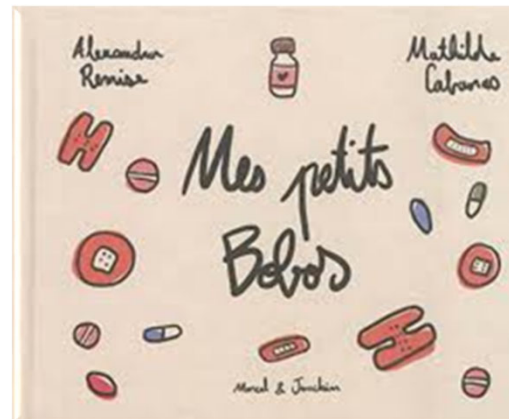 Alexandra
Mathilde
Cabanas
Mes petits
Bobos
Marcel & Joachim